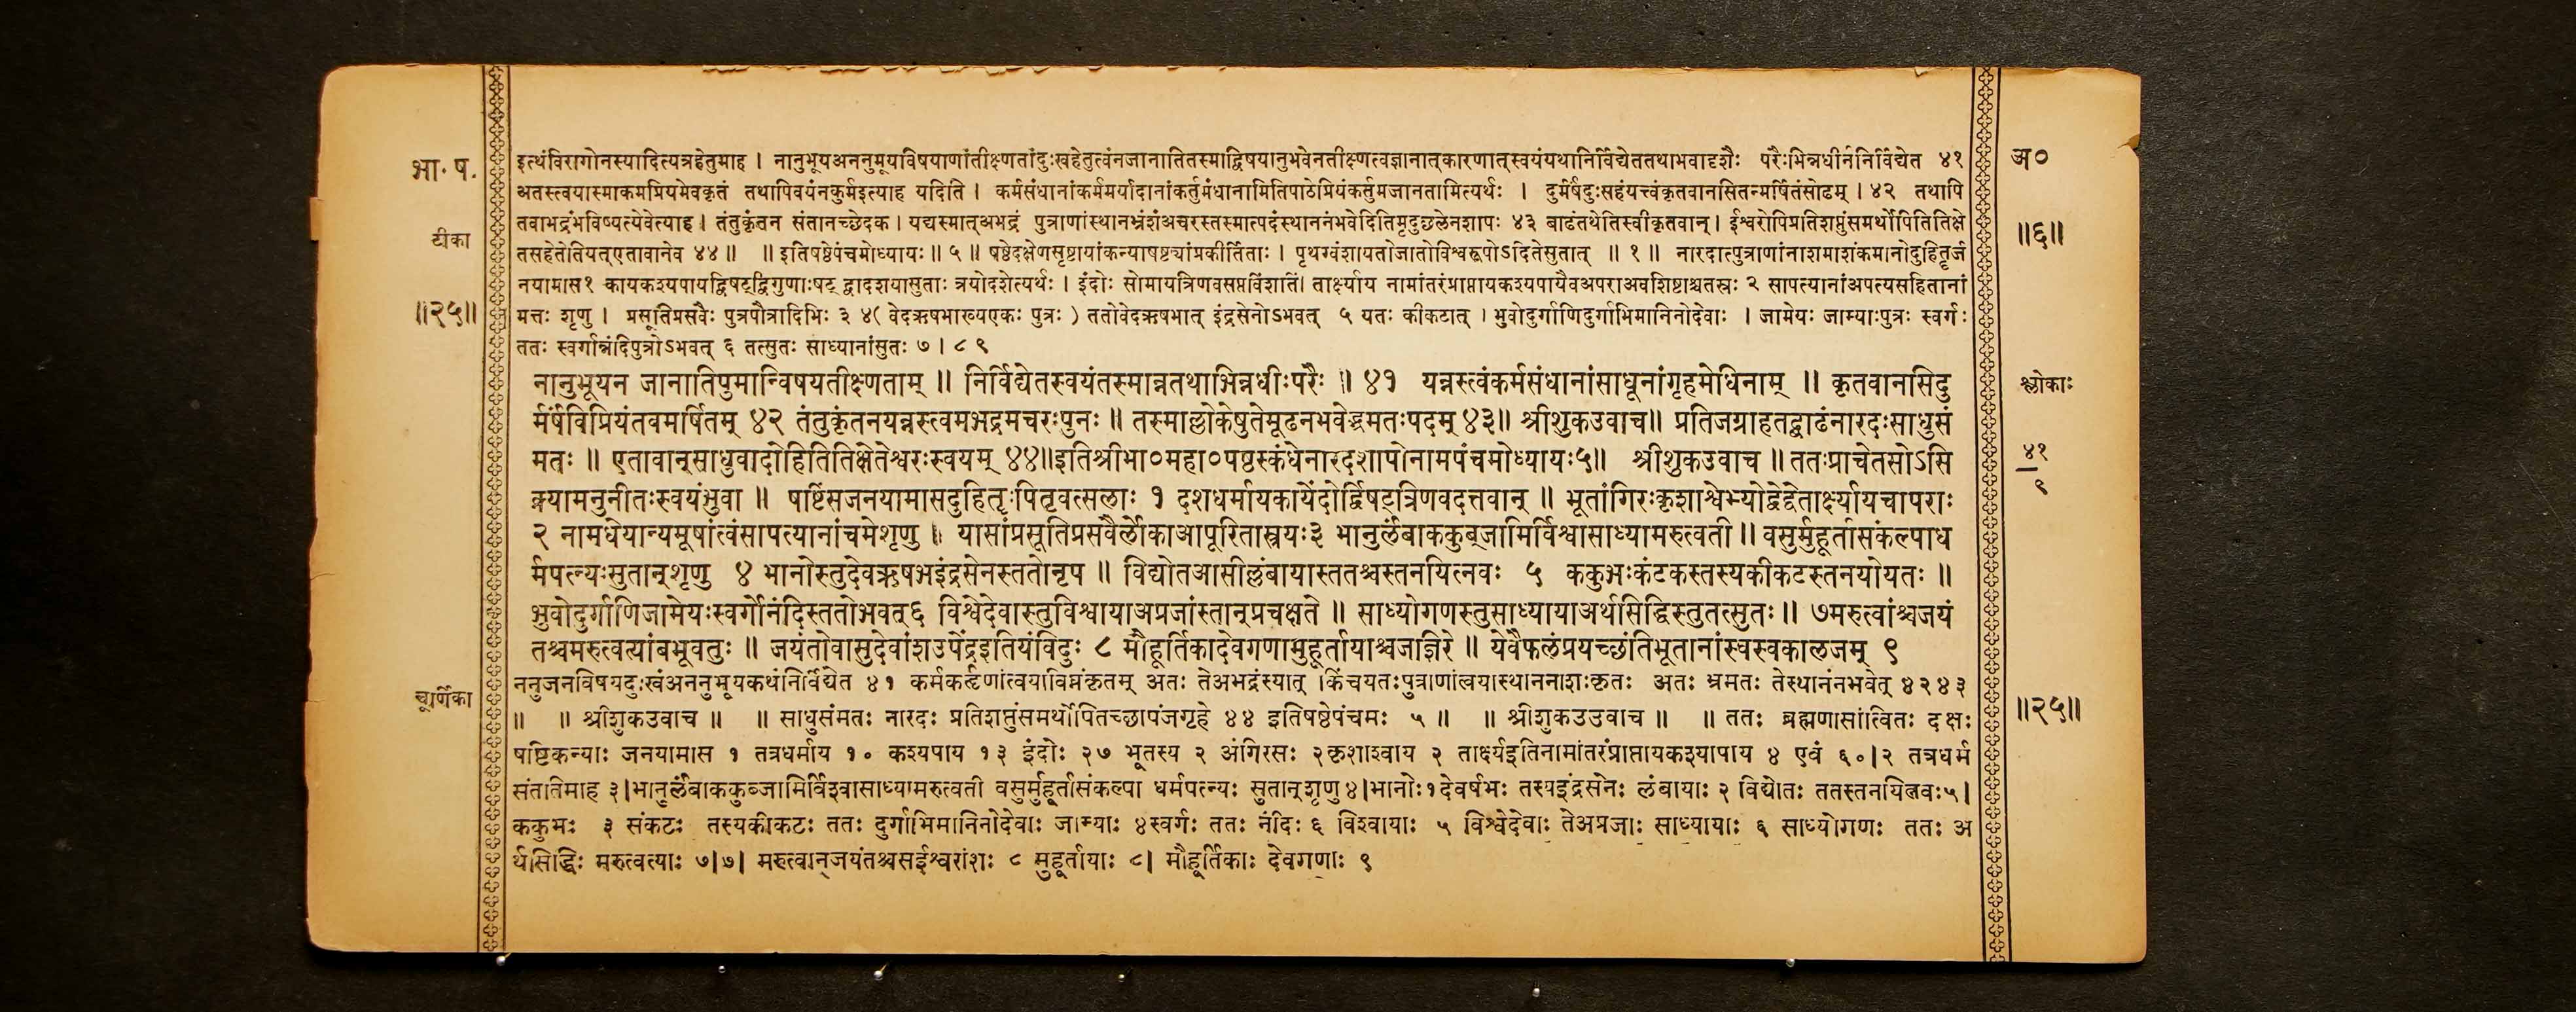 भा. ष.
टीका
॥२५॥
इत्थंविरागोनस्यादित्यत्रहेतुमाह । नानुभूयअननुमूयाविषयाणांतीक्ष्णतांदुःखहेतुत्वंनजानातितस्माद्विषयानुभवेनतीक्ष्णत्वज्ञानात्कारणात्स्वयंयथानिर्विद्येततथाभवादृशैः परैःभिन्नधीर्ननिर्विद्येत ४१
अतस्त्वयास्माकमप्रियमेवकृतं तथापिवयंनकुर्मइत्याह यदिति । कर्मसंधानांकर्ममर्यादानांकर्तुमंधानामितिपाठेप्रियंकर्तुमजानतामित्यर्थः । दुर्मर्षदुःसहंयत्त्वंकृतवानसितन्मर्षितंसोढम् । ४२ तथापि
तवाभद्रंभविष्यत्येवेत्याह । तंतुकृंतन संतानच्छेदक । यद्यस्मात्अभद्रं पुत्राणांस्थानभ्रंशंअचरस्तस्मात्पदंस्थाननंभवेदितिमृदुछलेनशापः ४३ बाढंतथेतिस्वीकृतवान् । ईश्वरोपिप्रतिशप्तुंसमर्थोपितितिक्षे
तसहेतेतियत्एतावानेव ४४ ॥ ॥ इतिषष्ठेपंचमोध्यायः ॥ ५ ॥ षष्ठेदक्षेणसृष्टायांकन्याषष्ट्यांप्रकीर्तिताः । पृथग्वंशायतोजातोविश्वरूपोऽदितेसुतात् ॥ १ ॥ नारदात्पुत्राणांनाशमाशंकमानोदुहितॄर्ज
नयामास१ कायकश्यपायद्विषट्द्विगुणाःषट् द्वादशयासुताः त्रयोदशेत्यर्थः । इंदोः सोमायत्रिणवसप्तविंशतिं। तार्क्ष्याय नामांतरंप्राप्तायकश्यपायैवअपराअवशिष्टाश्चतस्रः २ सापत्यानांअपत्यसहितानां
मत्तः शृणु । प्रसूतिप्रसवैः पुत्रपौत्रादिभिः ३ ४( वेदऋषभाख्यएकः पुत्रः ) ततोवेदऋषभात् इंद्रसेनोऽभवत् ५ यतः कीकटात् । भुवोदुर्गाणिदुर्गाभिमानिनोदेवाः । जामेयः जाम्याःपुत्रः स्वर्गः
ततः स्वर्गान्नंदिपुत्रोऽभवत् ६ तत्सुतः साध्यानांसुतः ७ । ८ ९
नानुभूयन जानातिपुमान्विषयतीक्ष्णताम् ॥ निर्विद्येतस्वयंतस्मान्नतथाभिन्नधीःपरैः ॥ ४१ यन्नस्त्वंकर्मसंधानांसाधूनांगृहमेधिनाम् ॥ कृतवानसिदु
र्मर्षंविप्रियंतवमर्षितम् ४२ तंतुकृंतनयन्नस्त्वमभद्रमचरःपुनः ॥ तस्माल्लोकेषुतेमूढनभवेद्भमतःपदम् ४३॥ श्रीशुकउवाच॥ प्रतिजग्राहतद्बाढंनारदःसाधुसं
मतः ॥ एतावान्साधुवादोहितितिक्षेतेश्वरःस्वयम् ४४॥इतिश्रीभा०महा०षष्ठस्कंधेनारदशापोनामपंचमोध्यायः५॥ श्रीशुकउवाच ॥ ततःप्राचेतसोऽसि
क्न्यामनुनीतःस्वयंभुवा ॥ षष्टिंसजनयामासदुहितॄःपितृवत्सलाः १ दशधर्मायकायेंदोर्द्विषट्त्रिणवदत्तवान् ॥ भूतांगिरःकृशाश्वेभ्योद्वेद्वेतार्क्ष्यायचापराः
२ नामधेयान्यमूषांत्वंसापत्यानांचमेशृणु ॥ यासांप्रसूतिप्रसवैर्लोकाआपूरितास्त्रयः३ भानुर्लंबाककुब्जामिर्विश्वासाध्यामरुत्वती ॥ वसुर्मुहूर्तासंकल्पाध
र्मपत्न्यःसुतान्शृणु ४ भानोस्तुदेवऋषभइंद्रसेनस्ततोनृप ॥ विद्योतआसील्लंबायास्ततश्चस्तनयित्नवः ५ ककुभःकंटकस्तस्यकीकटस्तनयोयतः ॥
भुवोदुर्गाणिजामेयःस्वर्गोनंदिस्ततोभवत्६ विश्वेदेवास्तुविश्वायाअप्रजांस्तान्प्रचक्षते ॥ साध्योगणस्तुसाध्यायाअर्थसिद्धिस्तुतत्सुतः॥ ७मरुत्वांश्चजयं
तश्चमरुत्वत्यांबभूवतुः ॥ जयंतोवासुदेवांशउपेंद्रइतियंविदुः ८ मौहूर्तिकादेवगणामुहूर्तायाश्चजज्ञिरे ॥ येवैफलंप्रयच्छंतिभूतानांस्वस्वकालजम् ९
चूर्णिका
ननुजनविषयदुःखंअननुभूयकथंनिर्विद्येत ४१ कर्मकर्तॄणांत्वयाविघ्नंकृतम् अतः तेअभद्रंस्यात् ।किंचयतःपुत्राणांत्वयास्थाननाशःकृतः अतः भ्रमतः तेस्थानंनभवेत् ४२४३
॥ ॥ श्रीशुकउवाच ॥ ॥ साधुसंमतः नारदः प्रतिशप्तुंसमर्थोपितच्छापंजगृहे ४४ इतिषष्ठेपंचमः ५ ॥ ॥ श्रीशुकउउवाच ॥ ॥ ततः ब्रह्मणासांत्वितः दक्षः
षष्टिकन्याः जनयामास १ तत्रधर्माय १० कश्यपाय १३ इंदोः २७ भूतस्य २ अंगिरसः २कृशाश्वाय २ तार्क्ष्यइतिनामांतरंप्राप्तायकश्यापाय ४ एवं ६०।२ तत्रधर्म
संततिमाह ३।भानुर्लंबाककुब्जामिर्विश्वासाध्यामरुत्वती वसुर्मुहूर्तासंकल्पा धर्मपत्न्यः सुतान्शृणु४।भानोः१देवर्षभः तस्यइंद्रसेनः लंबायाः २ विद्योतः ततस्तनयित्नवः५।
ककुभः ३ संकटः तस्यकीकटः ततः दुर्गाभिमानिनोदेवाः जाम्याः ४स्वर्गः ततः नंदिः ६ विश्वायाः ५ विश्वेदेवाः तेअप्रजाः साध्यायाः ६ साध्योगणः ततः अ
र्थसिद्धिः मरुत्वत्याः ७।७। मरुत्वान्जयंतश्चसईश्वरांशः ८ मुहूर्तायाः ८। मौहूर्तिकाः देवगणाः ९
अ०
॥६॥
श्लोकाः
४१
९
॥२५॥